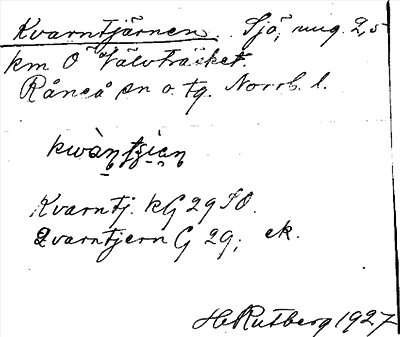 Kvarntjärnen. Sjö, ung. 2,5
km Ö Valvträsket.
Råneå sn o. tg. Norrb. l.
Kvarntj. kG 29 SO.
Qvarntjern G 29; ek.
H. Rutberg 1927